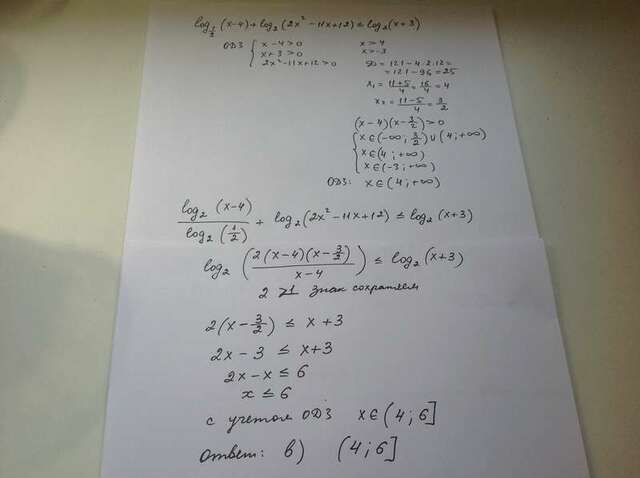 log_{1/2} (x-4) + log₂ (2x² - 11x + 12) ≤ log₂ (x+3)
ОДЗ { x - 4 > 0
x + 3 > 0
2x² - 11x + 12 > 0
x > 4
x > -3
D = 121 - 4·2·12 =
= 121 - 96 = 25
x₁ = (11+5)/4 = 16/4 = 4
x₂ = (11-5)/4 = 3/2
(x-4)(x-3/2) > 0
{ x ∈ (-∞; 3/2) ∪ (4; +∞)
x ∈ (4; +∞)
x ∈ (-3; +∞)
ОДЗ: x ∈ (4; +∞)
log₂ (x-4) / log₂ (1/2) + log₂ (2x² - 11x + 12) ≤ log₂ (x+3)
log₂ (2(x-4)(x-3/2) / (x-4)) ≤ log₂ (x+3)
2 > 1 знак сохраняем
2(x - 3/2) ≤ x + 3
2x - 3 ≤ x + 3
2x - x ≤ 6
x ≤ 6
с учетом ОДЗ x ∈ (4; 6]
ответ: в) (4; 6]